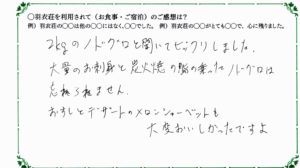 ○羽衣荘を利用されて(お食事・ご宿泊)のご感想は?
例)羽衣荘の○○は他の○○にはなく、○○でした。 例)羽衣荘の○○がとても○○で、心に残りました。
2kgのノドグロと聞いてビックリしました。
大量のお刺身と炭火焼の脂の乗ったノドグロは
忘れられません。
おすしとデザートのメロンシャーベットも
大変おいしかったですよ